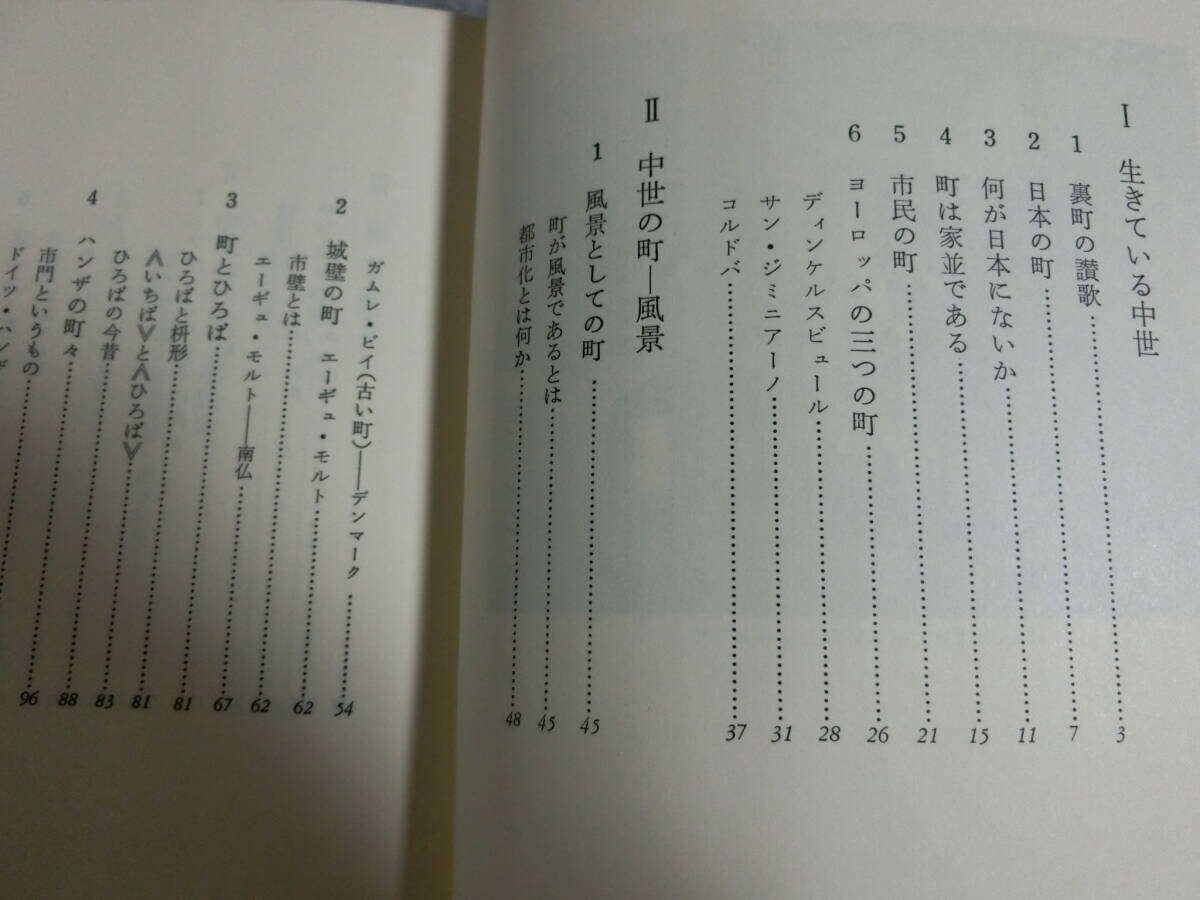 I 生きている中世
1 裏町の讃歌 3
2 日本の町 7
3 何が日本にないか 11
4 町は家並である 15
5 市民の町 21
6 ヨーロッパの三つの町 26
ディンケルスビュール 28
サン・ジミニアーノ 31
コルドバ 37
II 中世の町―風景
1 風景としての町 45
町が風景であるとは 45
都市化とは何か 48
ガムレ・ビイ(古い町)――デンマーク 54
2 城壁の町 エーギュ・モルト 62
市壁とは 62
エーギュ・モルト――南仏 67
3 町とひろば 81
ひろばと枡形 81
《いちば》と《ひろば》 83
ひろばの今昔 88
4 ハンザの町々 96
市門というもの